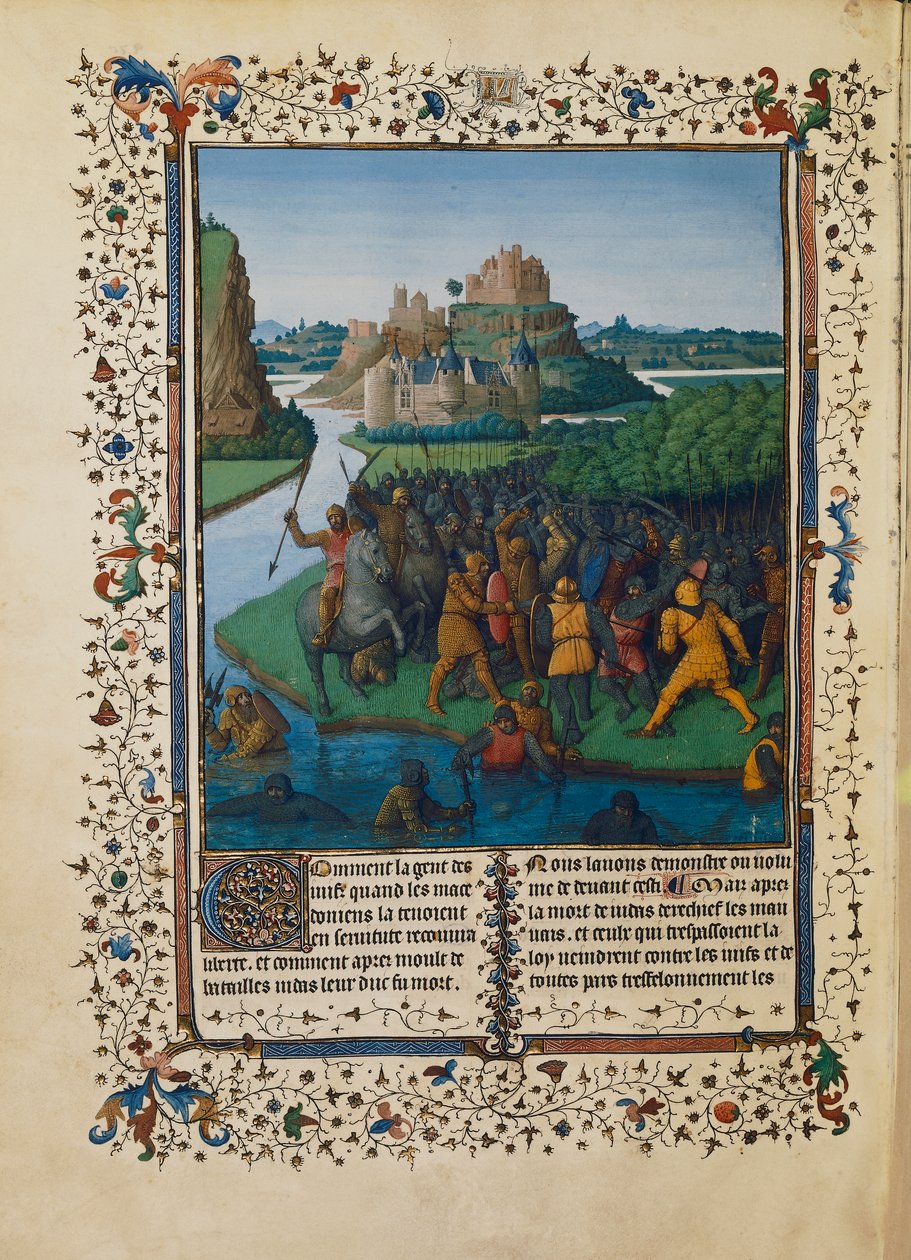 Comment la gent des
iuifs quand les mace
doniens la tenoient
en seruitute recouura
liberte. et comment apres moult de
batailles iudas leur duc fu mort.
Nous lauons demonstre ou uolu
me de deuant cesti. Mais apres
la mort de iudas derechief les mau
uais. et ceulx qui trespassoient la
loy uindrent contre les iuifs et de
toutes pars tresfelonnement les